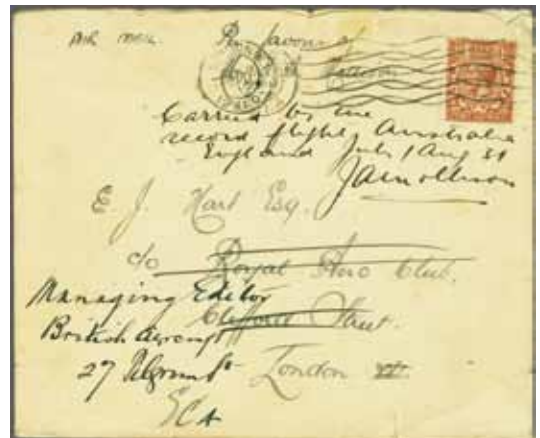 AIR MAIL. Per favour of
Carried by me
record flight Australia
England July/Aug 31
JAMollison
E. J. Hart Esq.
c/o Royal Aero Club.
Managing Editor
Clifford Street.
British Aircraft
27
London
EC4